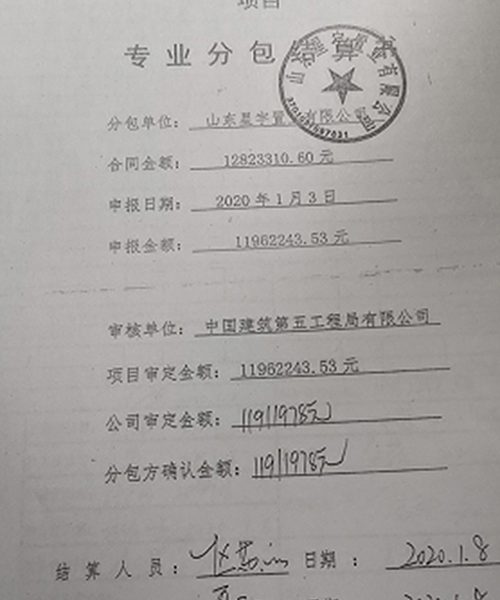 项目
专业分包结算
分包单位：山东星宇置业有限公司
合同金额：12823310.60 元
申报日期：2020 年 1 月 3 日
申报金额：11962243.53 元
审核单位：中国建筑第五工程局有限公司
项目审定金额：11962243.53 元
公司审定金额：11911978元
分包方确认金额：11911978元
结 算 人 员：
日期：2020.1.8